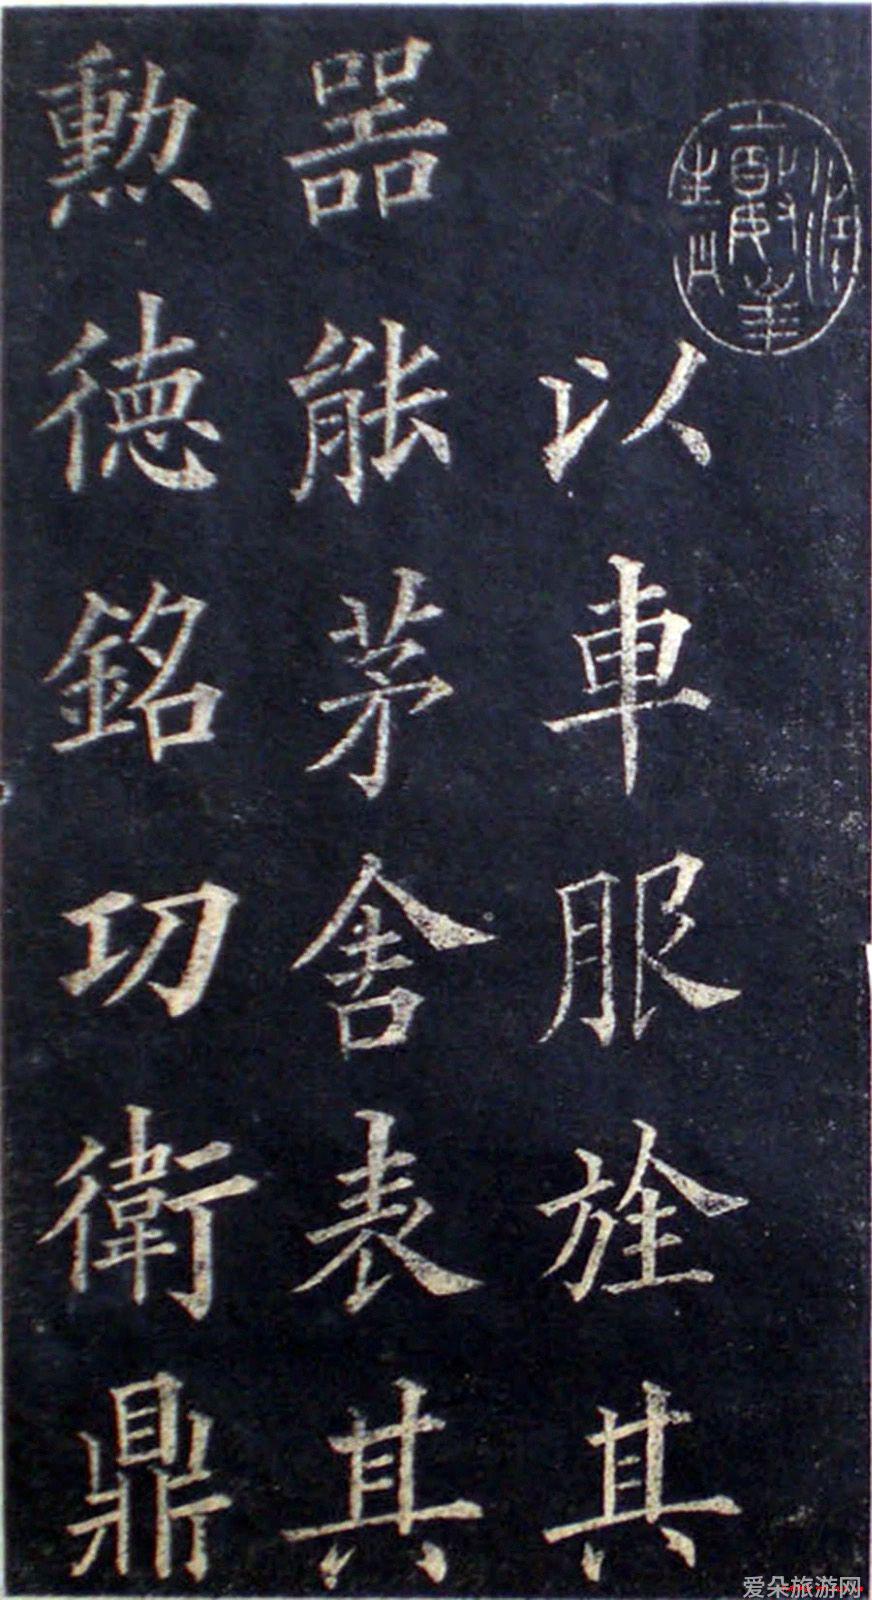 以車服旌其
器能茅舍表其
勲德銘功衛鼎
爱朵旅游网